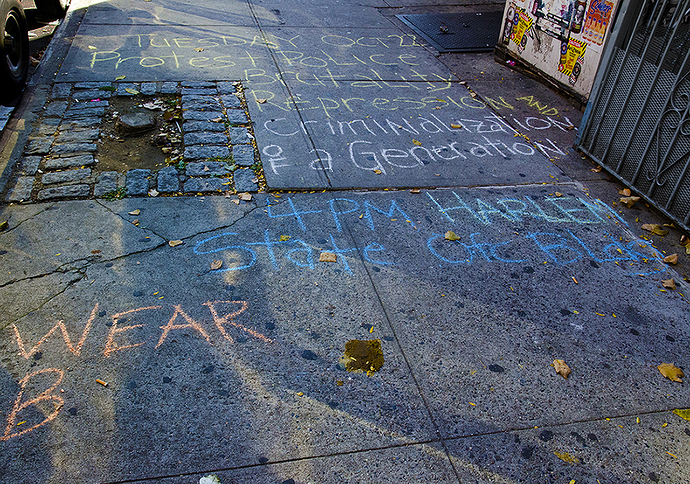 TUESDAY OCT 22
Protest Police
Brutality
Repression AND
Criminalization
OF a Generation
4PM HARLEM
State Ofc Bldg
WEAR
B